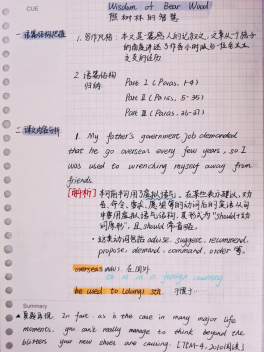 CUE
Wisdom of Bear Wood
熊树林的智慧
一.语篇结构梳理
1. 写作风格：本文是一篇
2. 语篇结构
归纳
Part I (Paras. 1-4)
Part II (Paras. 5-35)
Part III (Paras. 36-37)
二.课文内容分析
1. My father's government job demanded
that he go overseas every few years, so I
was used to wrenching myself away from
friends.
[解析]
句型的动词后的宾语从
句中要用虚拟语气结构，其形式为"should+动
词原形"，且should常省略。
·此类动词包括 advise, suggest, recommend,
propose, demand, command, order 等。
overseas adv. 在国外
to or in a foreign country
be used to (doing) sth 习惯于…
Summary
In fact, as is the case in many major life
moments, you can't really manage to think beyond the
blisters your new shoes are causing. [TEM-4, 2010阅读]